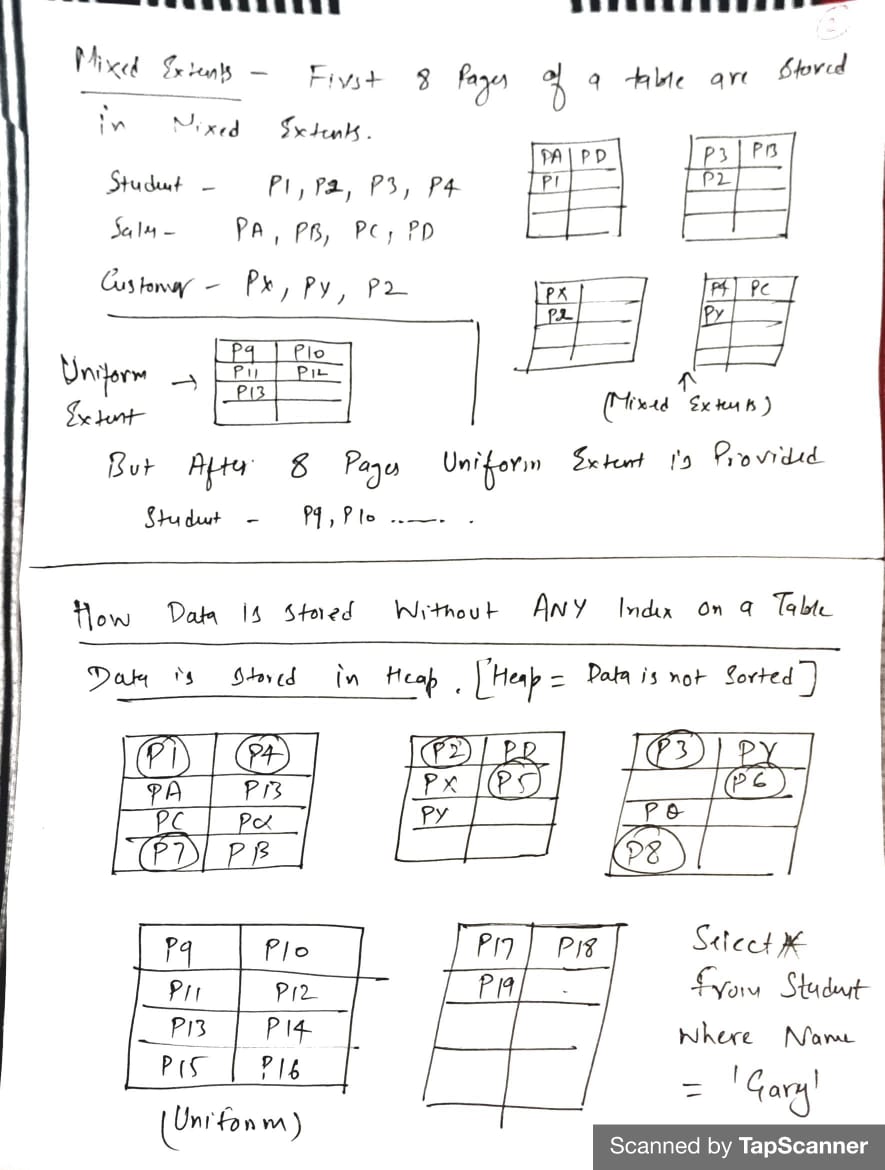 2
Mixed Extents - First 8 Pages of a table are Stored
in Mixed Extents.
Student - P1, P2, P3, P4
Sales - PA, PB, PC, PD
Customer - PX, PY, PZ
PA PD
P1
P3 PB
P2
PX
PZ
P4 PC
PY
(Mixed Extents)
Uniform
Extent →
P9 P10
P11 P12
P13
But After 8 Pages Uniform Extent is Provided
Student - P9, P10 ........
How Data Is Stored Without ANY Index on a Table
Data is Stored in Heap. [Heap = Data is not Sorted]
P1 P4
PA PB
PC Pα
P7 Pβ
P2 PD
PX P5
PY
P3 PY
P6
Pθ
P8
P9 P10
P11 P12
P13 P14
P15 P16
(Uniform)
P17 P18
P19
Select *
from Student
Where Name
= 'Gary'
Scanned by TapScanner